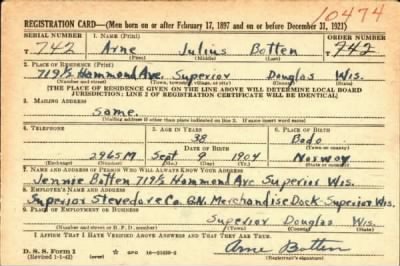 10474
REGISTRATION CARD—(Men born on or after February 17, 1897 and on or before December 31, 1921)
SERIAL NUMBER 1. NAME (Print) ORDER NUMBER
T 742 Arne Julius Botten 742
(First) (Middle) (Last)
2. PLACE OF RESIDENCE (Print)
719½ Hammond Ave. Superior Douglas Wis.
(Number and street) (Town, township, village, or city) (County) (State)
[THE PLACE OF RESIDENCE GIVEN ON THE LINE ABOVE WILL DETERMINE LOCAL BOARD
JURISDICTION; LINE 2 OF REGISTRATION CERTIFICATE WILL BE IDENTICAL]
3. MAILING ADDRESS
Same.
[Mailing address if other than place indicated on line 2. If same insert word same]
4. TELEPHONE 5. AGE IN YEARS 6. PLACE OF BIRTH
38 Bodo
DATE OF BIRTH (Town or county)
2965M Sept 9 1904 Norway
(Exchange) (Number) (Mo.) (Day) (Yr.) (State or country)
7. NAME AND ADDRESS OF PERSON WHO WILL ALWAYS KNOW YOUR ADDRESS
Jennie Botten 719½ Hammond Ave Superior Wis.
8. EMPLOYER'S NAME AND ADDRESS
Superior Stevedore Co. G.N. Merchandise Dock Superior Wis.
9. PLACE OF EMPLOYMENT OR BUSINESS
Superior Douglas Wis.
(Number and street or R. F. D. number) (Town) (County) (State)
I AFFIRM THAT I HAVE VERIFIED ABOVE ANSWERS AND THAT THEY ARE TRUE.
D. S. S. Form 1
(Revised 1-1-42) (over) GPO
Arne Botten